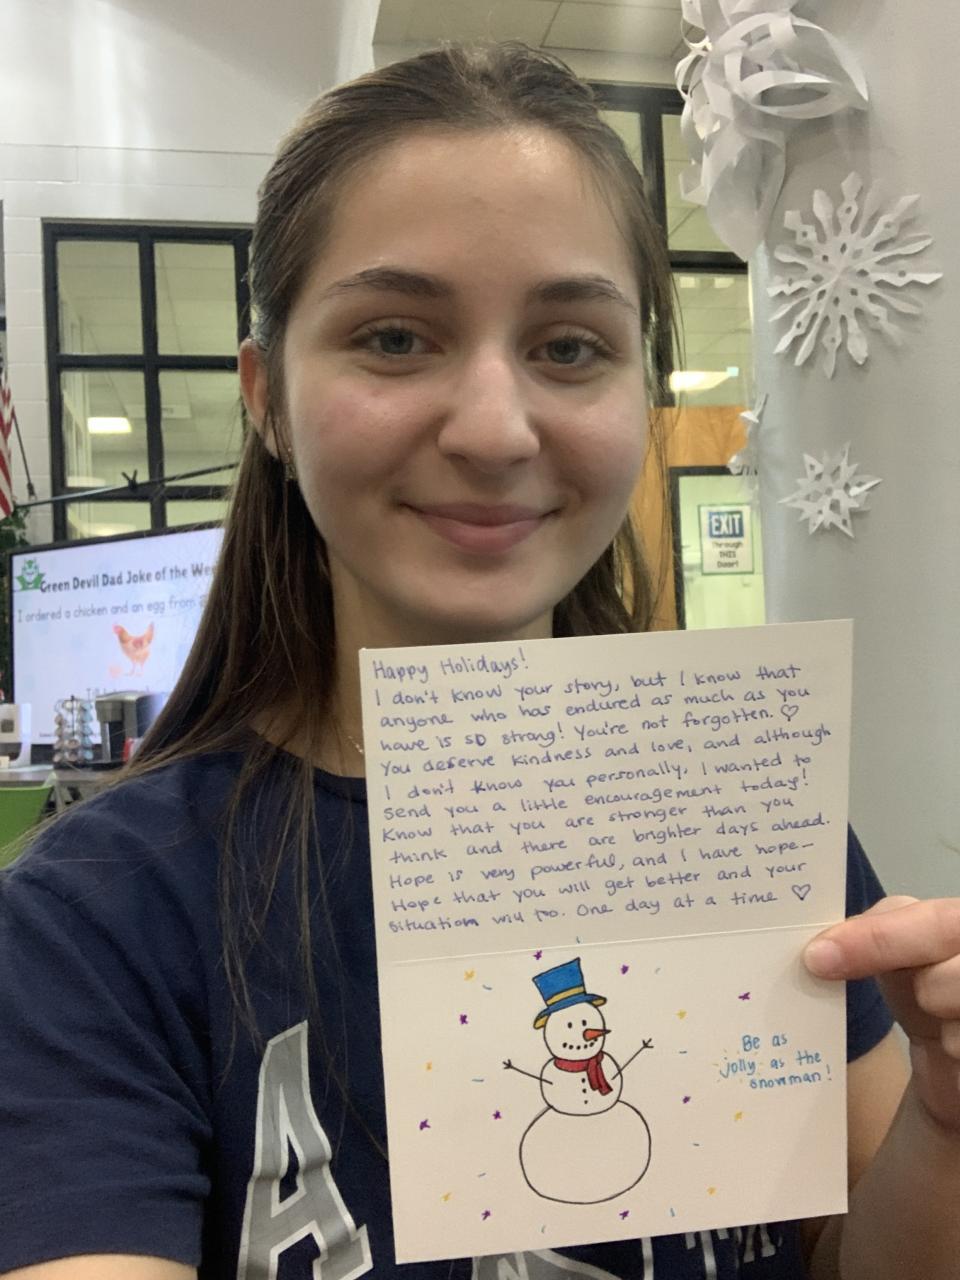 Green Devil Dad Joke of the Wee
I ordered a chicken and an egg from
EXIT
Through
THIS
Door!
Happy Holidays!
I don't know your story, but I know that
anyone who has endured as much as you
have is so strong! You're not forgotten. ♡
You deserve kindness and love, and although
I don't know you personally, I wanted to
send you a little encouragement today!
Know that you are stronger than you
think and there are brighter days ahead.
Hope is very powerful, and I have hope-
Hope that you will get better and your
situation will too. One day at a time ♡
Be as
jolly as the
snowman!
A